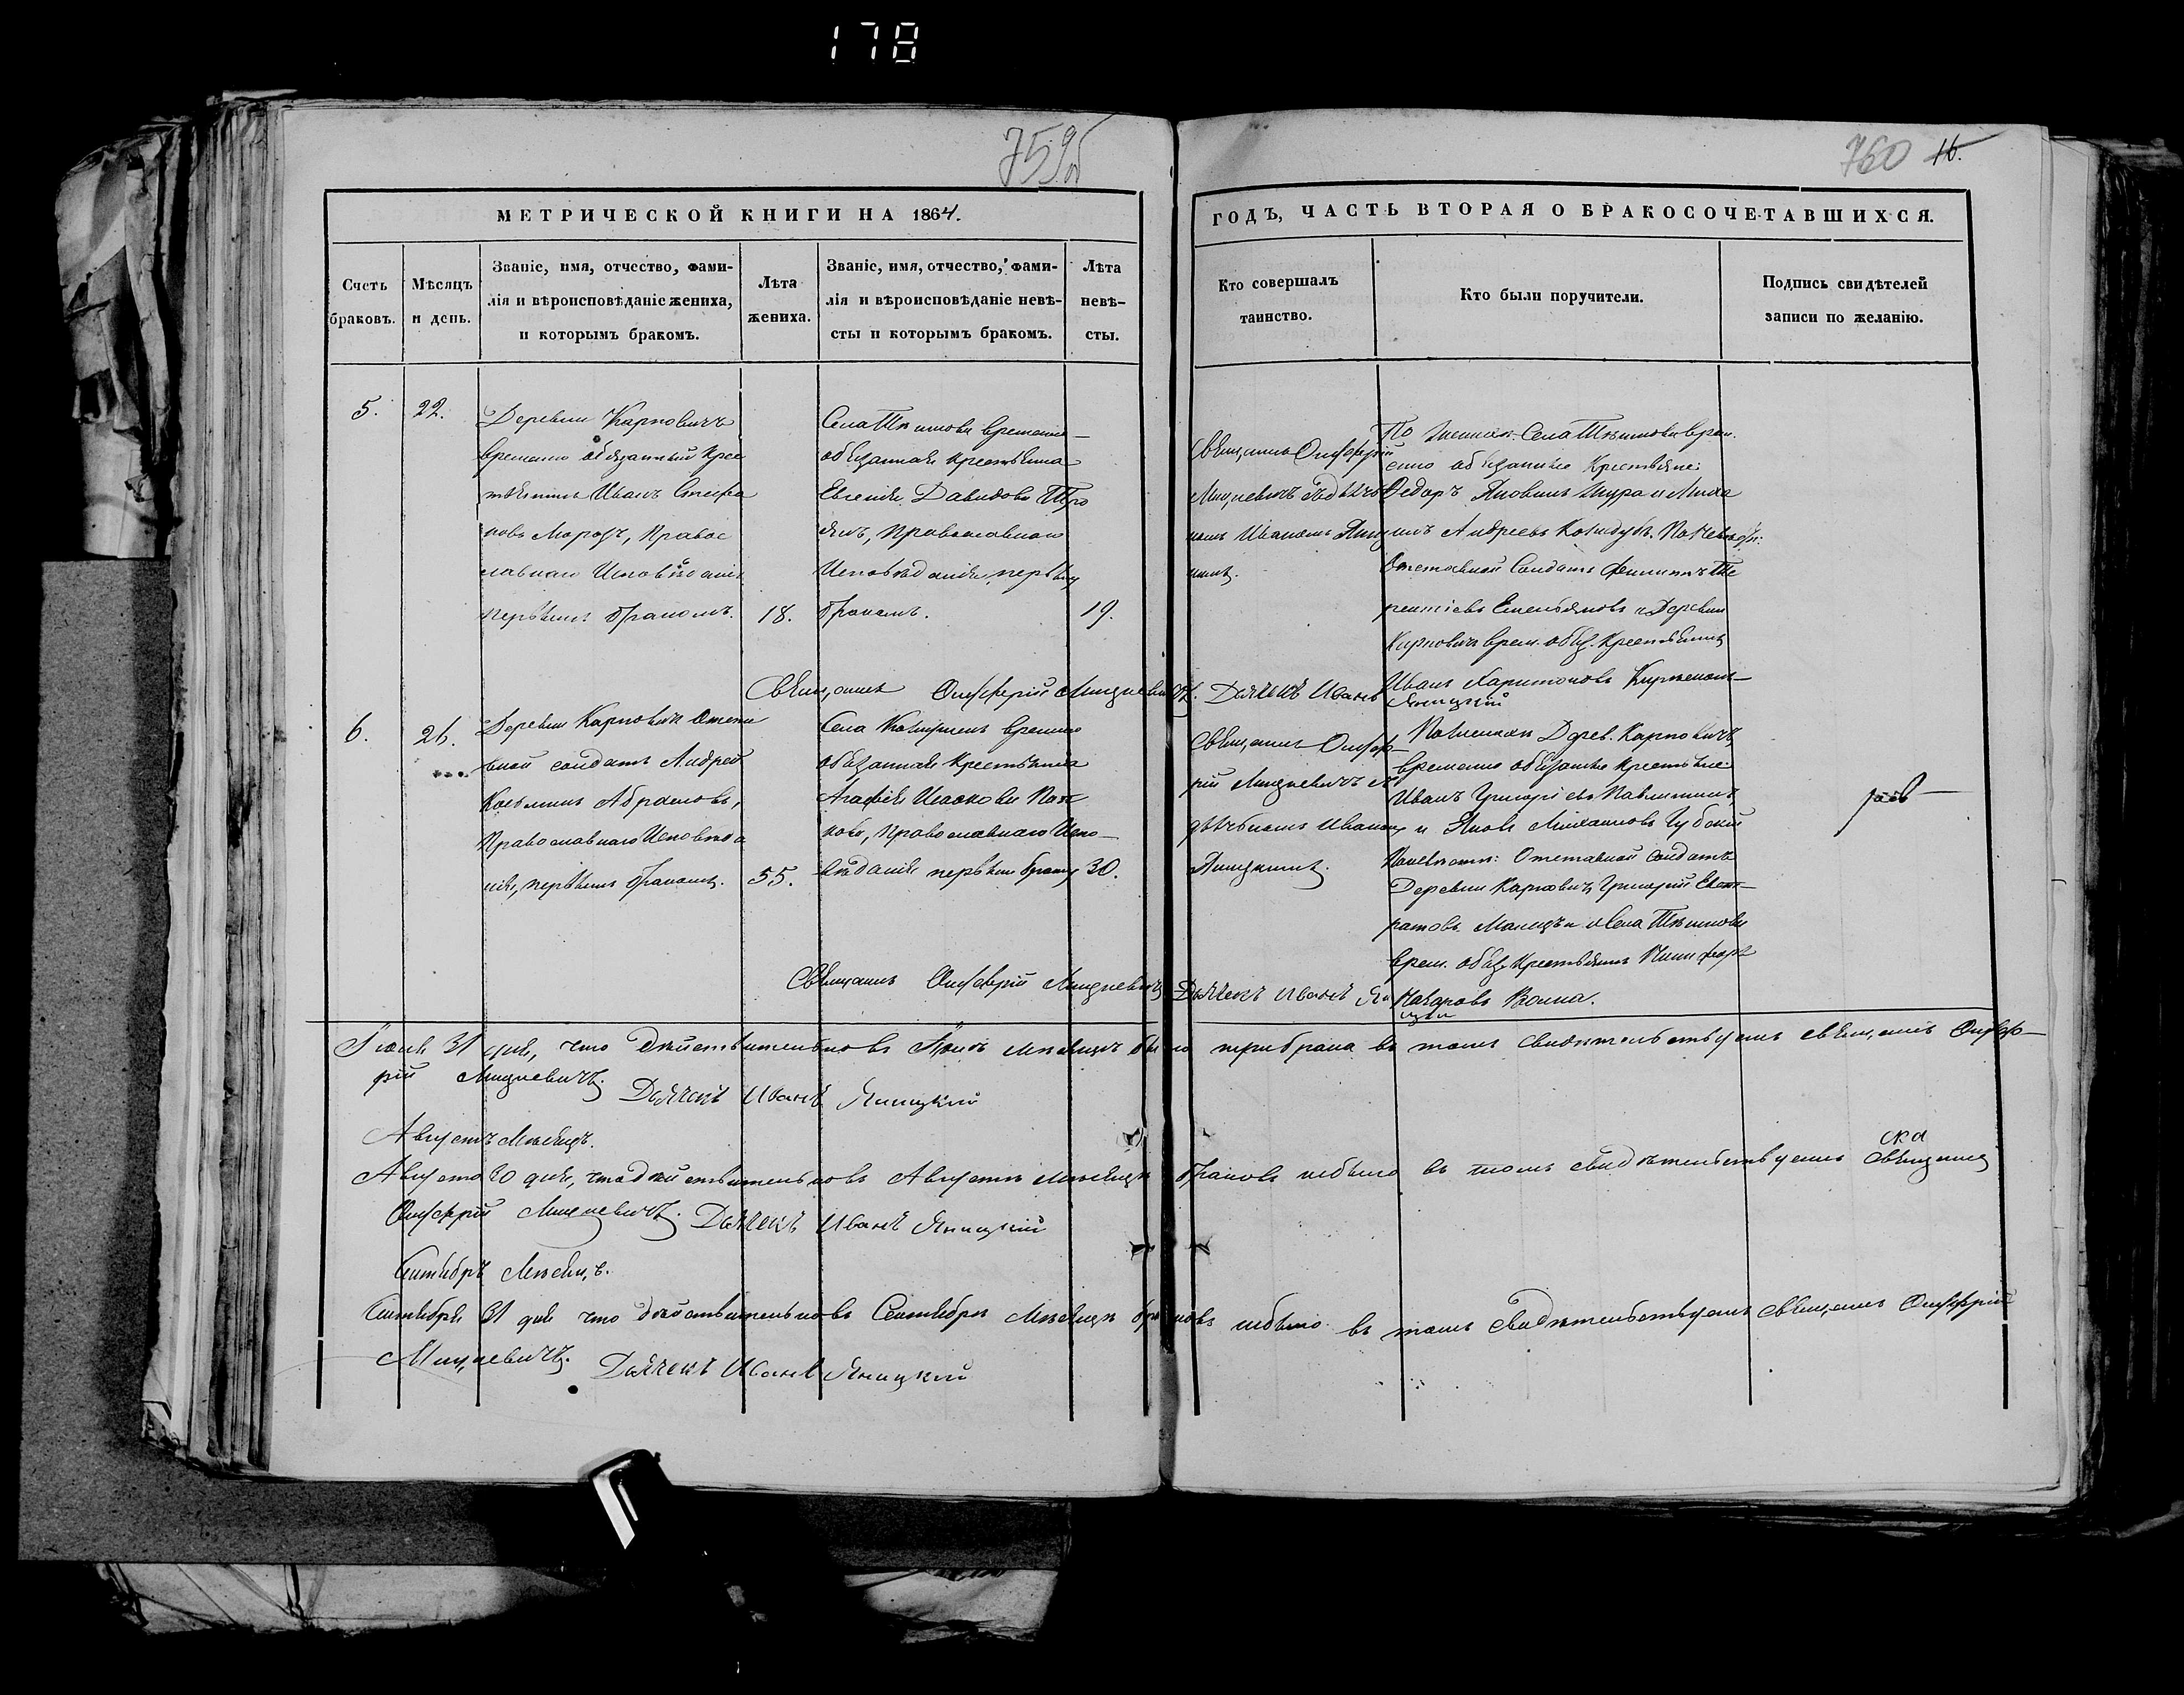 178
759об
760 16.
МЕТРИЧЕСКОЙ КНИГИ НА 1864.
ГОДЪ, ЧАСТЬ ВТОРАЯ О БРАКОСОЧЕТАВШИХСЯ.
Счетъ
браковъ.
Мѣсяцъ
и день.
Званіе, имя, отчество, фами-
лія и вѣроисповѣданіе жениха,
и которымъ бракомъ.
Лѣта
жениха.
Званіе, имя, отчество, фами-
лія и вѣроисповѣданіе невѣ-
сты и которымъ бракомъ.
Лѣта
невѣ-
сты.
Кто совершалъ
таинство.
Кто были поручители.
Подпись свидѣтелей
записи по желанію.
5.
22.
Деревни Карповичъ
временно обязанный Крес
тьянинъ Иванъ Стефа
новъ Морозъ, Правос
лавнаго Исповѣданія
первымъ бракомъ.
18.
Села временно-
обязанная крестьянка
Евгенія Давидова
Православнаго
Исповѣданія, первым
бракомъ.
19.
Священникъ Онуфрій
Мицкевичъ съ дьяч
комъ Иваномъ Яниц
кимъ.
По женихѣ: Села врем.
енно обязанные Крестьяне:
Федоръ Яковлевъ и Миха
илъ Андреевъ По невѣстѣ:
Отставной Солдатъ Филиппъ Те
рентіевъ Емельяновъ и Деревни
Карповичъ врем. обяз. Крестьянинъ
Иванъ Харитоновъ
Священникъ Онуфрій Мицкевичъ. Дьячекъ Иванъ Яницкій
6.
26.
Деревни Карповичъ Отста
вной солдатъ Андрей
Косьминъ Абрамовъ,
Православнаго Исповѣда
нія, первымъ бракомъ.
55.
Села временно
обязанная Крестьянка
Агафія Исаакова
Православнаго Испо-
вѣданія первым браком
30.
Священникъ Онуф-
рій Мицкевичъ съ
дьячкомъ Иваном
Яницкимъ.
По женихѣ Дерев. Карповичъ,
временно обязанные крестьяне:
Иванъ Григоріевъ
и Яковъ Михаиловъ
По невѣстѣ: Отставной солдатъ
Деревни Карповичъ Григорій
и Села
врем. обяз. Крестьянинъ Никифоръ
Макаровъ
Священникъ Онуфрій Мицкевичъ Дьячекъ Иванъ Яницкій
Іюля 31 дня, что дѣйствительно въ Іюлѣ мѣсяцѣ было три брака въ томъ свидѣтельствуемъ Священникъ Онуф-
рій Мицкевичъ. Дьячекъ Иванъ Яницкій
Августъ Мѣсяцъ.
Августа 30 дня, что дѣйствительно въ Августѣ мѣсяцѣ браковъ небыло въ томъ свидѣтельствуемъ Священникъ
Онуфрій Мицкевичъ. Дьячекъ Иванъ Яницкій
Сентябрь Мѣсяцъ.
Сентября 31 дня что дѣйствительно въ Сентябрѣ Мѣсяцѣ браковъ небыло въ томъ свидѣтельствуемъ Священникъ Онуфрій
Мицкевичъ. Дьячекъ Иванъ Яницкій